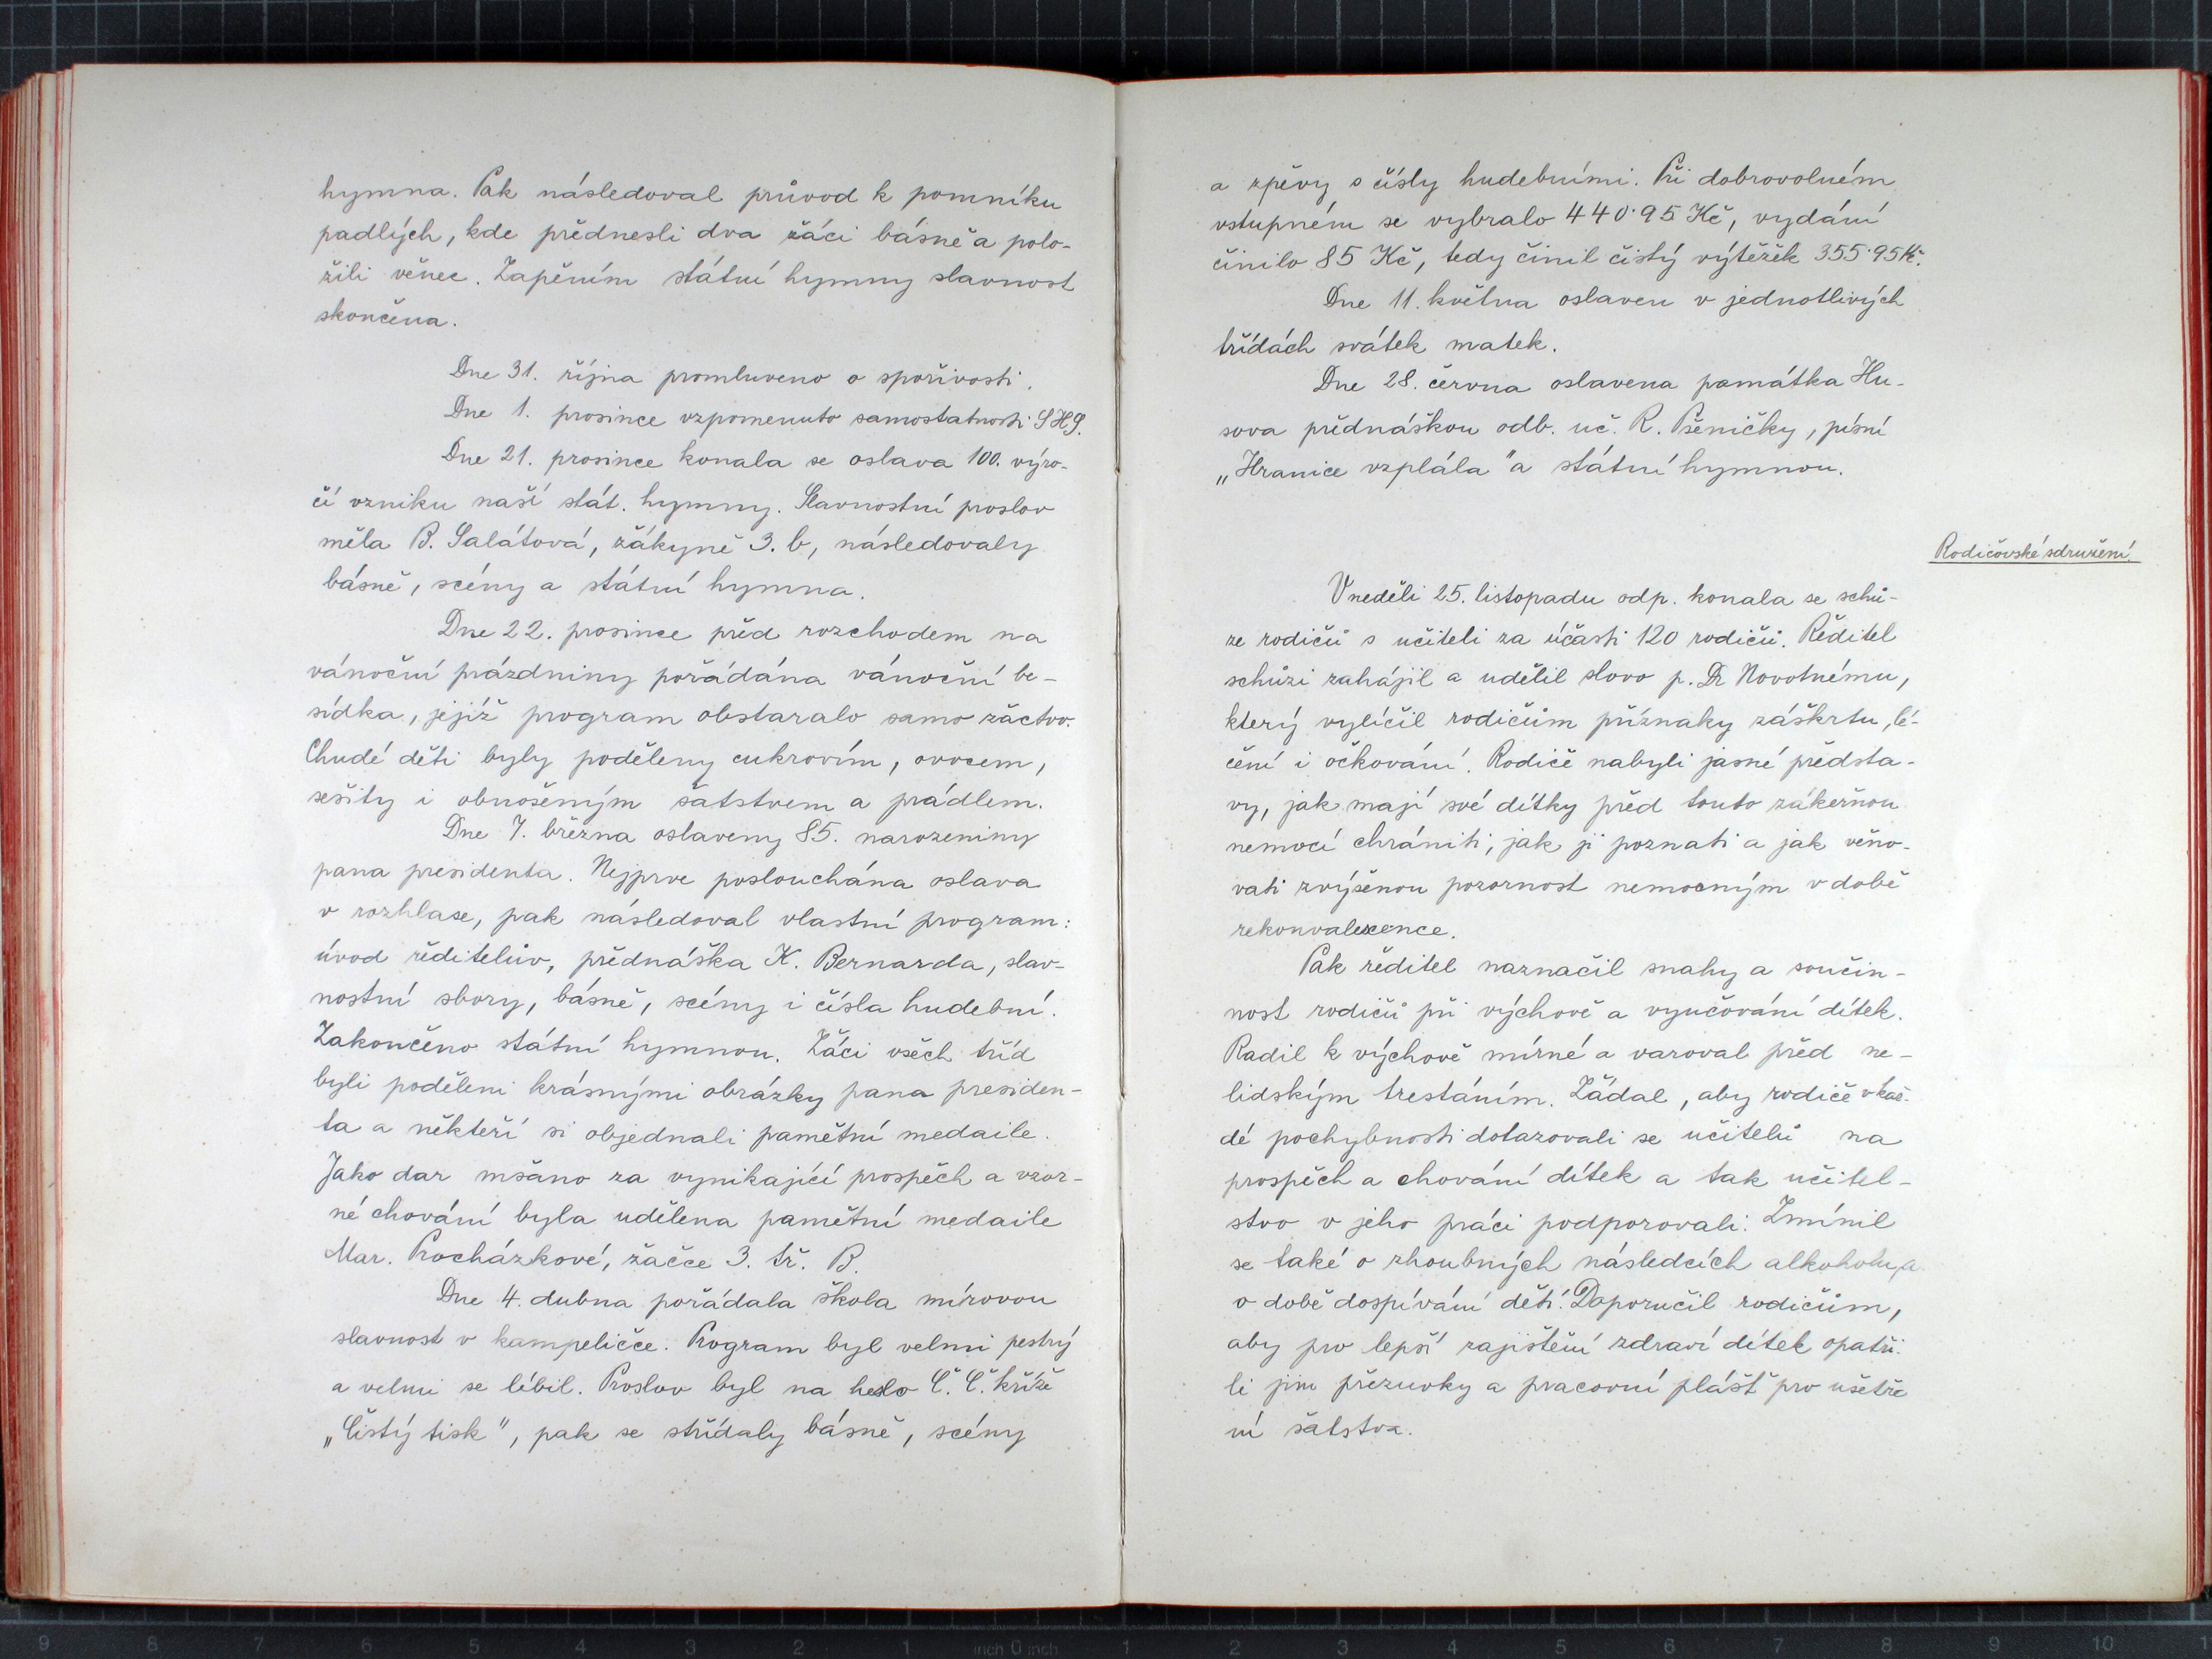 hymna. Pak následoval průvod k pomníku
padlých, kde přednesli dva žáci básně a polo-
žili věnec. Zapěním státní hymny slavnost
skončena.
Dne 31. října promluveno o spořivosti.
Dne 1. prosince vzpomenuto samostatnosti SHS.
Dne 21. prosince konala se oslava 100. výro-
čí vzniku naší stát. hymny. Slavnostní proslov
měla B. Salátová, žákyně 3. b, následovaly
básně, scény a státní hymna.
Dne 22. prosince před rozchodem na
vánoční prázdniny pořádána vánoční be-
sídka, jejíž program obstaralo samo žactvo.
Chudé děti byly poděleny cukrovím, ovocem,
sešity i obnošeným šatstvem a prádlem.
Dne 7. března oslaveny 85. narozeniny
pana presidenta. Nejprve poslouchána oslava
v rozhlase, pak následoval vlastní program:
úvod ředitelův, přednáška K. Bernarda, slav-
nostní sbory, básně, scény i čísla hudební.
Zakončeno státní hymnou. Žáci všech tříd
byli poděleni krásnými obrázky pana presiden-
ta a někteří si objednali pamětní medaile.
Jako dar mšano za vynikající prospěch a vzor-
né chování byla udělena pamětní medaile
Mar. Procházkové, žačce 3. tř. B.
Dne 4. dubna pořádala škola mírovou
slavnost v kampeličce. Program byl velmi pestrý
a velmi se líbil. Proslov byl na heslo Č. Č. kříže
„Čistý tisk", pak se střídaly básně, scény
a zpěvy s čísly hudebními. Při dobrovolném
vstupném se vybralo 440·95 Kč, vydání
činilo 85 Kč, tedy činil čistý výtěžek 355·95 Kč.
Dne 11. května oslaven v jednotlivých
třídách svátek matek.
Dne 28. června oslavena památka Hu-
sova přednáškou odb. uč. R. Pšeničky, písní
„Hranice vzplála" a státní hymnou.
Rodičovské sdružení.
V neděli 25. listopadu odp. konala se schů-
ze rodičů s učiteli za účasti 120 rodičů. Ředitel
schůzi zahájil a udělil slovo p. Dr Novotnému,
který vylíčil rodičům příznaky záškrtu, lé-
čení i očkování. Rodiče nabyli jasné předsta-
vy, jak mají své dítky před touto zákeřnou
nemocí chrániti, jak ji poznati a jak věno-
vati zvýšenou pozornost nemocným v době
rekonvalescence.
Pak ředitel naznačil snahy a součin-
nost rodičů při výchově a vyučování dítek.
Radil k výchově mírné a varoval před ne-
lidským trestáním. Žádal, aby rodiče v kaž-
dé pochybnosti dotazovali se učitelů na
prospěch a chování dítek a tak učitel-
stvo v jeho práci podporovali. Zmínil
se také o zhoubných následcích alkoholu, a
o době dospívání dětí. Doporučil rodičům,
aby pro lepší zajištění zdraví dítek opatři-
li jim přezuvky a pracovní plášť pro ušetře
ní šatstva.